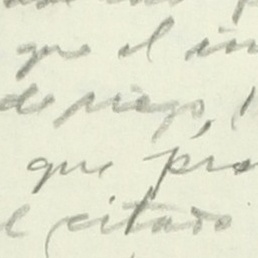 que el in
de riego,
que pro
el citado